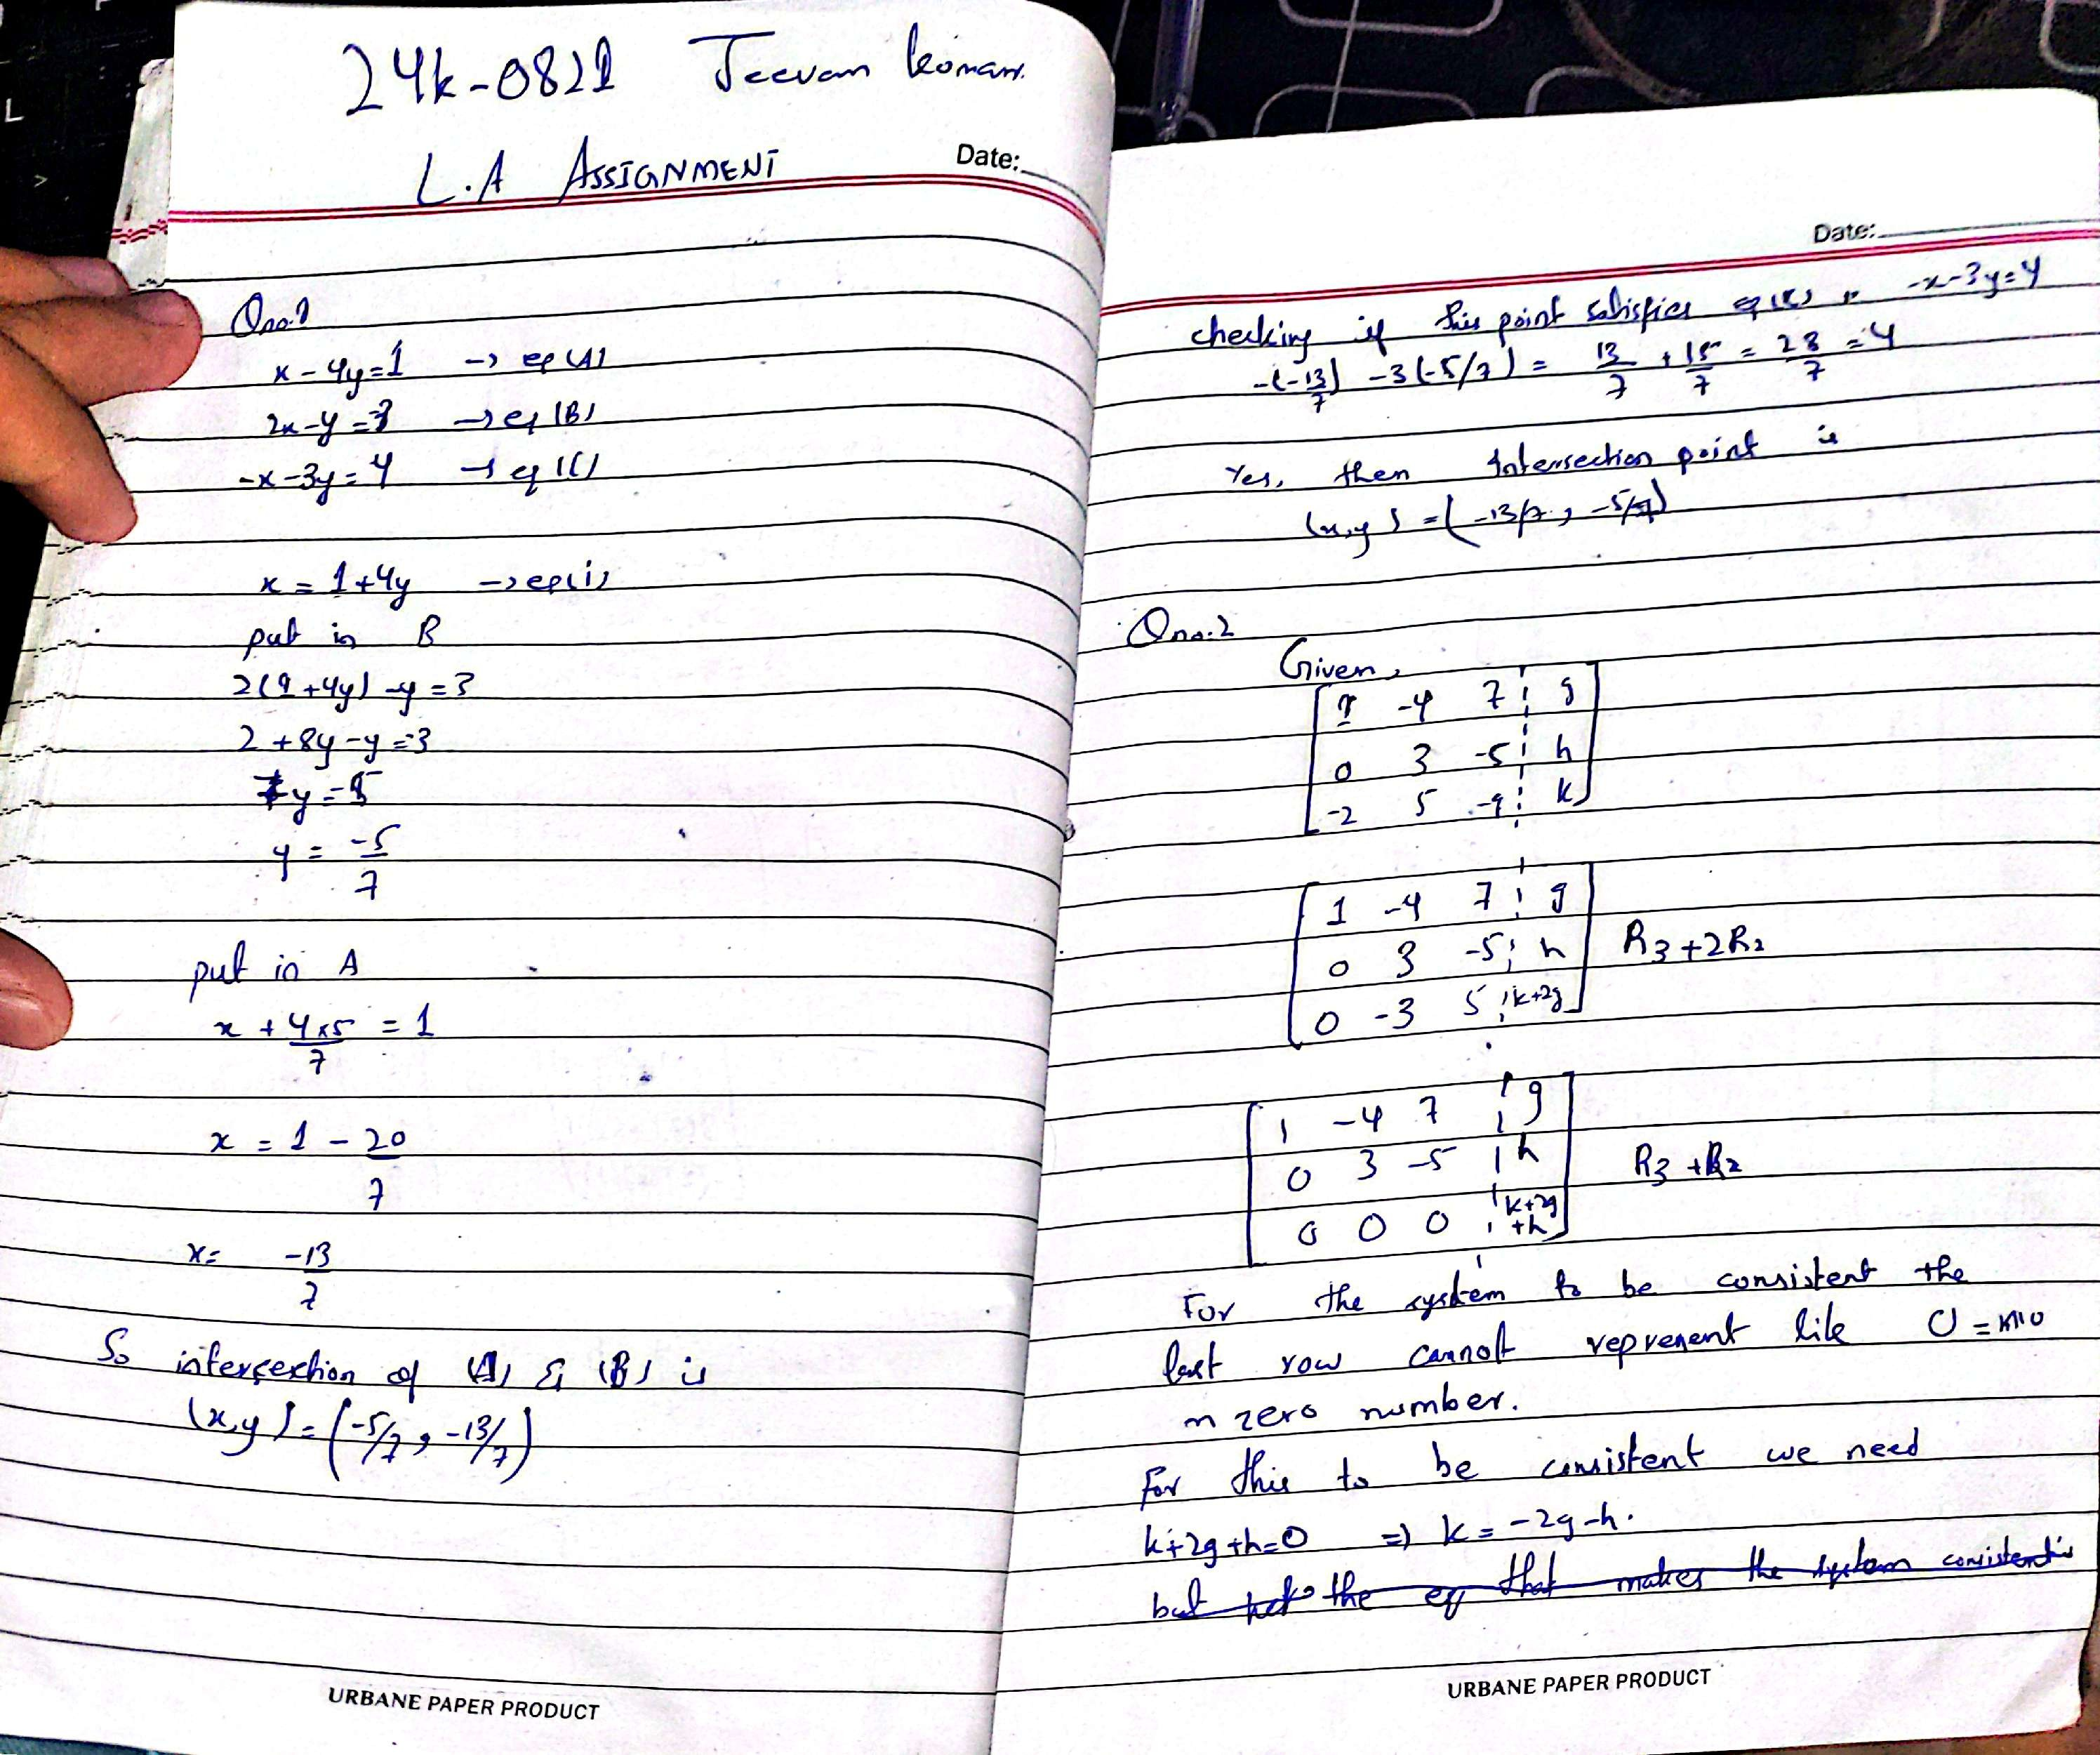 24k-0821 Jeevan kumar.
L.A ASSIGNMENT
Date:
Qno.1
x - 4y = 1 → eq (A)
2x - y = -3 → eq (B)
-x - 3y = 4 → eq (C)
x = 1 + 4y → eq(i)
put in B
2(1 + 4y) - y = -3
2 + 8y - y = -3
7y = -5
y = -5/7
put in A
x + 4×5/7 = 1
x = 1 - 20/7
x = -13/7
So intersection of (A) & (B) is
(x,y) = (-5/7, -13/7)
URBANE PAPER PRODUCT
Date:
checking if this point satisfies eq(C) -x-3y=4
-(-13/7) -3(-5/7) = 13/7 + 15/7 = 28/7 = 4
Yes, then Intersection point is
(x,y) = (-13/7, -5/7)
Qno.2
Given,
1 -4 7 g
0 3 -5 h
-2 5 -9 k
1 -4 7 g
0 3 -5 h R3+2R1
0 -3 5 k+2g
1 -4 7 g
0 3 -5 h R3+R2
0 0 0 k+2g
+h
For the system to be consistent the
last row cannot represent like 0 =
zero number.
For this to be consistent we need
k+2g+h=0 => k = -2g-h.
but the eq that makes the system consistent is
URBANE PAPER PRODUCT